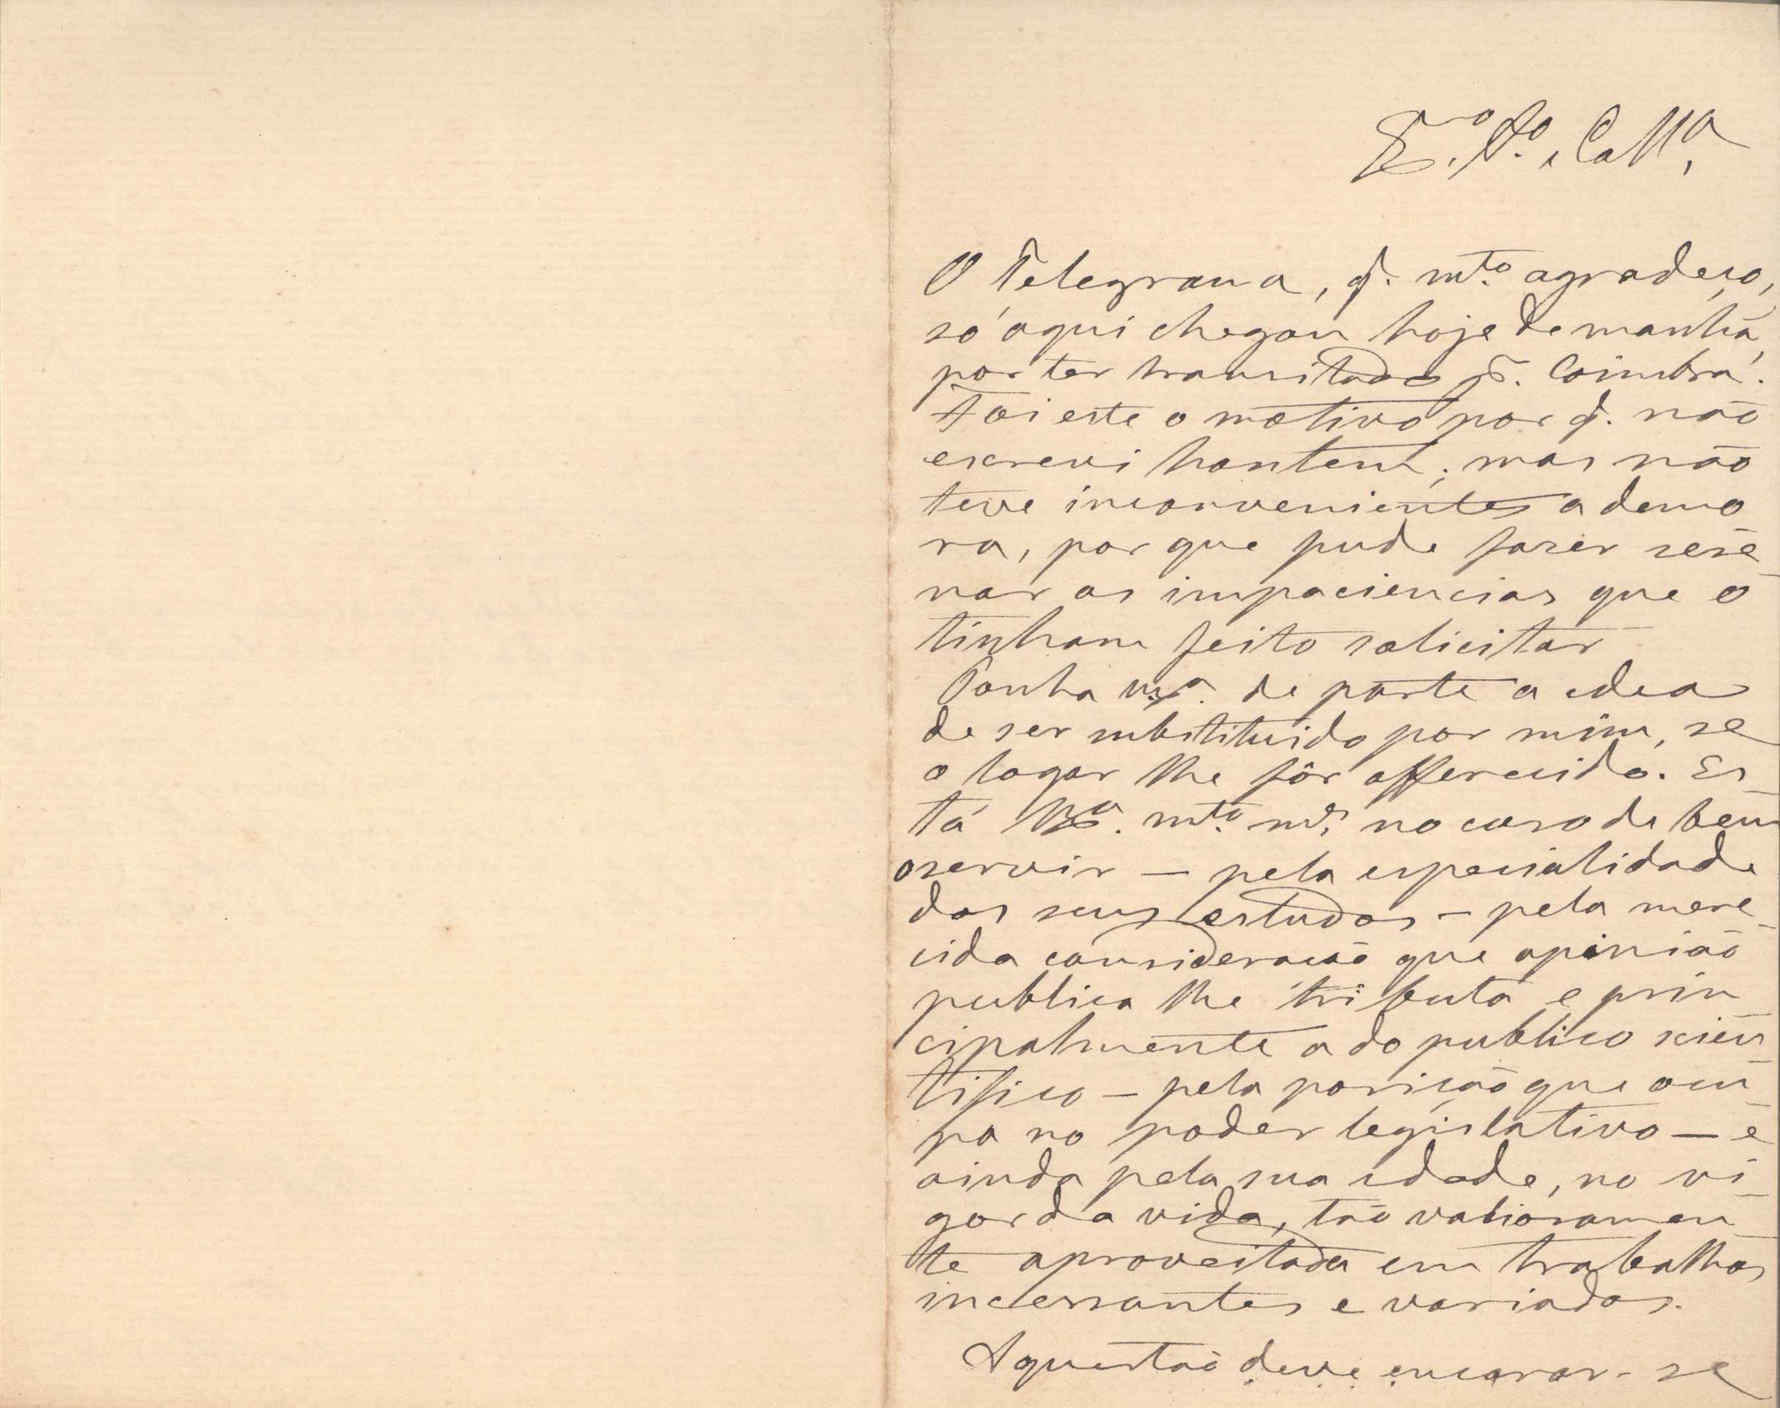 Ex.º Am.º e Coll.ª
O Telegrama, q. mto. agradeço,
só aqui chegou hoje de manhã,
por ter transitado pr. Coimbra.
Foi este o motivo por q. não
escrevi hontem; mas não
teve inconvenientes a demo
ra, por que pude fazer sere
nar as impaciencias que o
tinham feito solicitar
Ponha de parte a idea
de ser substituido por mim, se
o logar lhe fôr offerecido. Es
tá V. Ex.ª mto. no caso de bem
o servir — pela especialidade
dos seus estudos — pela mere
cida consideração que opinião
publica lhe tributa e prin
cipalmente a do publico scien
tifico — pela posição que occu
pa no poder legislativo — e
ainda pela sua idade, no vi
gor da vida, tão valiosamen
te aproveitada em trabalhos
incessantes e variados.
A questão deve encarar-se